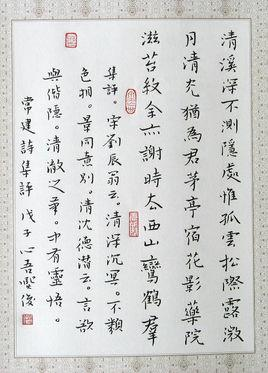 清溪深不測隱處惟孤雲松際露微
月清光猶為君茅亭宿花影藥院
滋苔紋余亦謝時去西山鸞鶴羣
集評。宋劉辰翁云。清深沉冥。不類
色相。景同意別。清沈德潛云。言欲
與偕隱。清澈之筆。中有靈悟。
常建詩集評 戊子 心吾